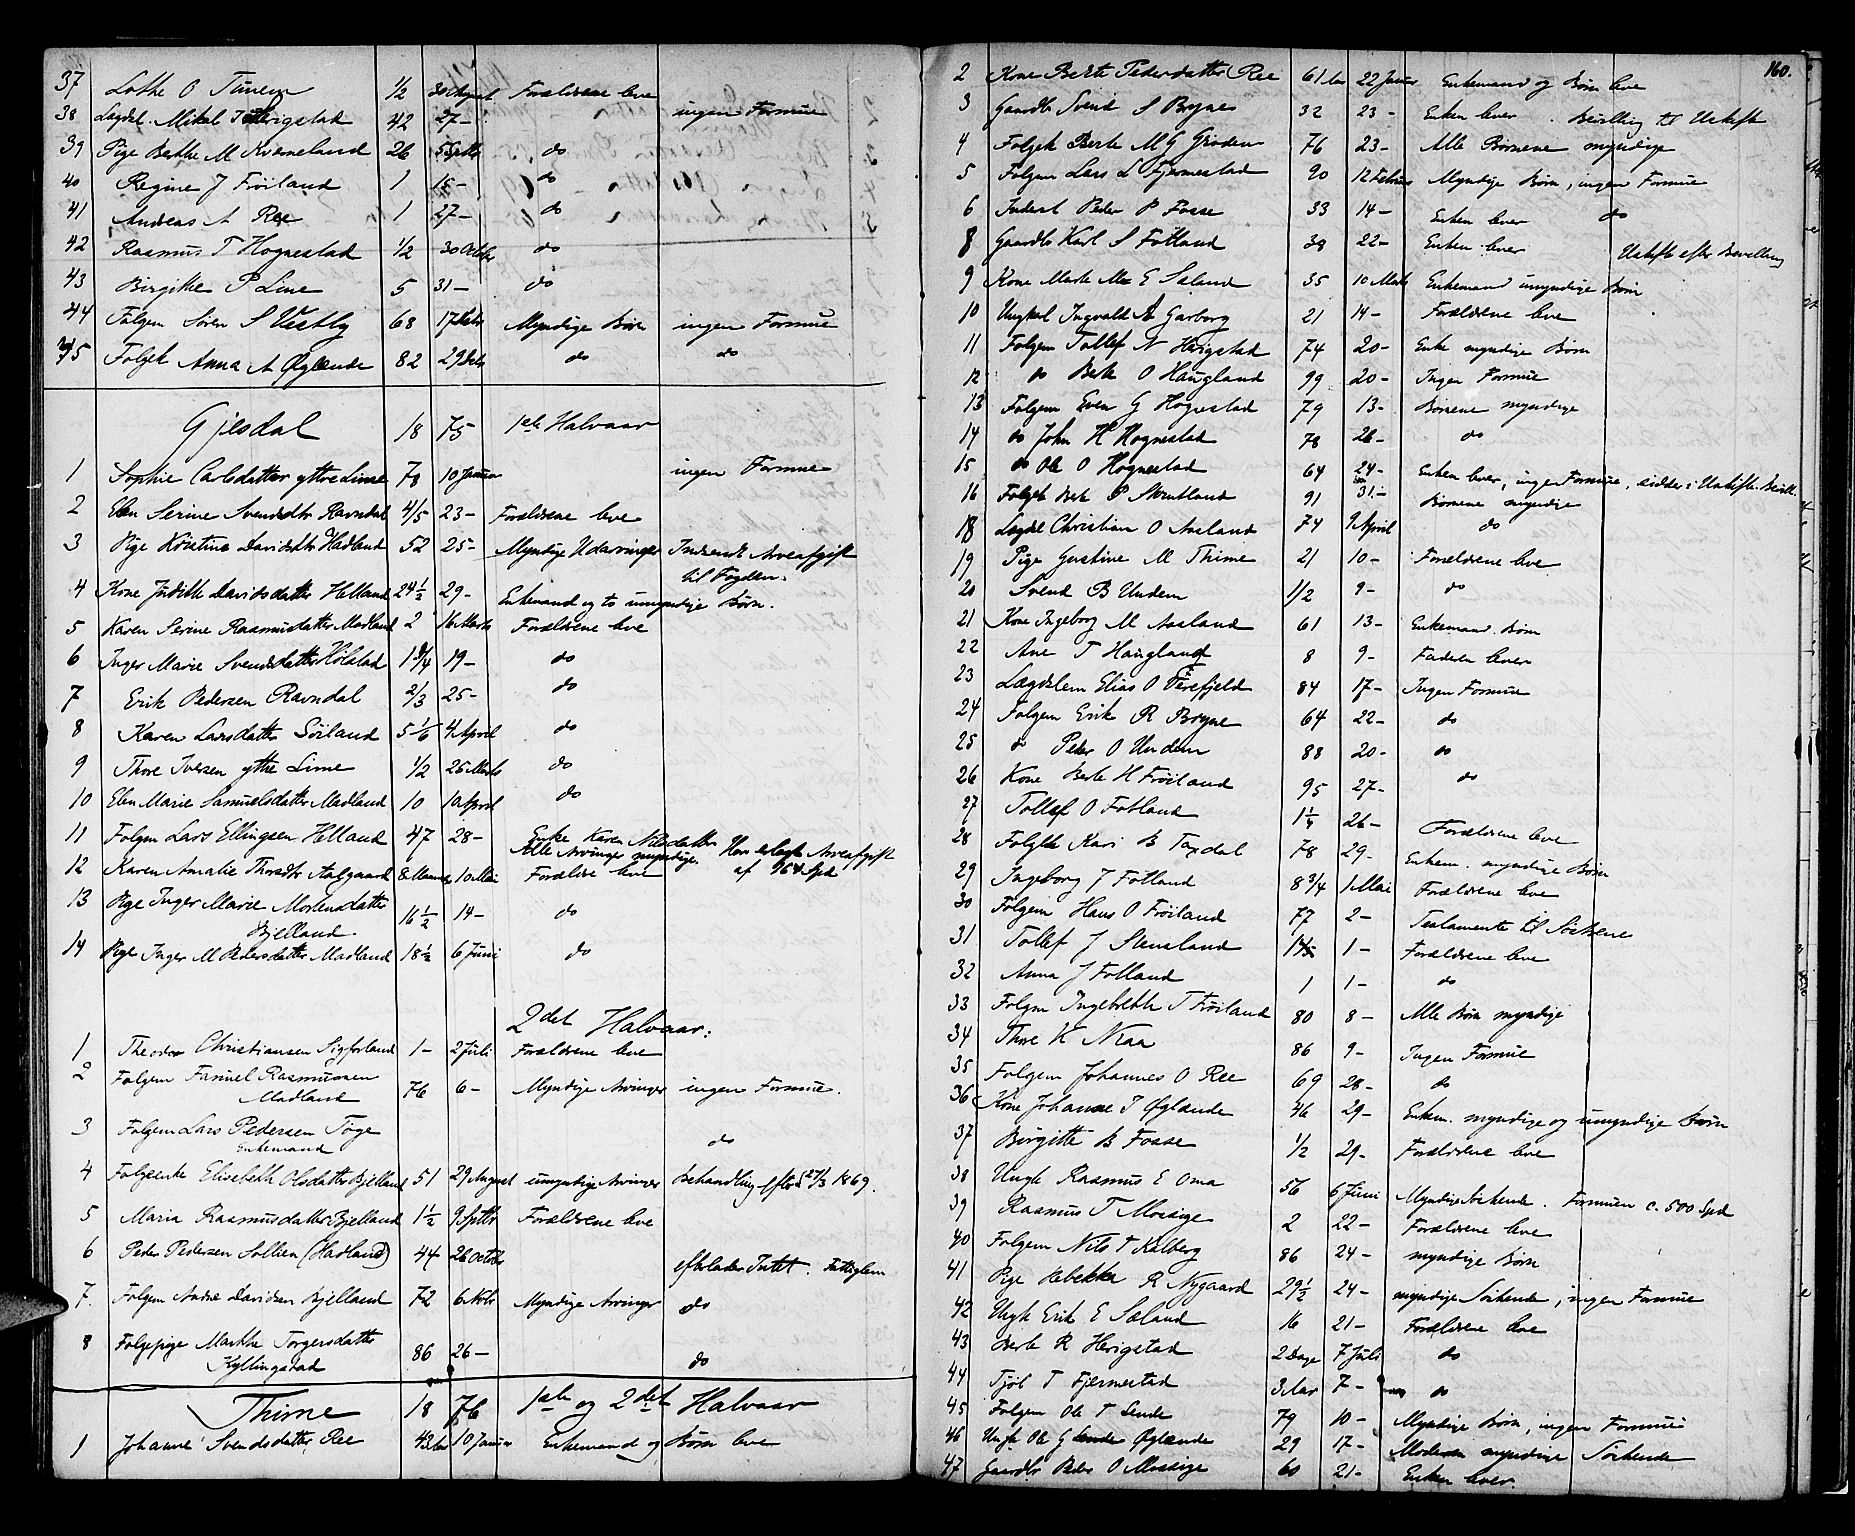 37 Lothe O Tunem 1/2 30 August Forældrene leve
38 Lægdsl. Mikal T Herigstad 42 27 - ingen Formue
39 Pige Berthe M Kverneland 26 5 Septbr do
40 Regine J Frøiland 1 15 - do
41 Andreas A Ree 1 27 - do
42 Rasmus T Hognestad 1/2 30 October do
43 Birgitte P Line 5 31 - do
44 Folgem Søren S Vestly 68 17 Myndige Børn ingen Formue
45 Folgek Anna A Øglænde 82 29 do do
Gjesdal 18 75 1ste Halvaar
1 Sophie Carlsdatter yttre Lima 78 10 Januar ingen Formue
2 Elen Serine Svendsdtr Ravndal 4/5 23 - Forældrene leve
3 Pige Kristine Davidsdtr Hadland 52 25 - Myndige Udarvinger Indsendt Arveafgift
til Fogden.
4 Kone Judithe Davidsdatter Helland 24 1/2 29 - Enkemand og to umyndige Børn.
5 Karen Serine Rasmusdatter Madland 2 16 Marts Forældrene leve
6 Inger Marie Svendsdatter Holstad 1 3/4 19 - do
7 Erik Pedersen Ravndal 2/3 25 - do
8 Karen Larsdatter Søiland 5 1/6 4 April do
9 Thore Iversen yttre Lime 1/2 25 Marts do
10 Elen Marie Samuelsdatter Madland 10 10 April do
11 Folgem Lars Ellingsen Helland 47 28 - Enke Karen Nilsdatter
Alle Arvinger myndige. Har erlagt Arveafgift
af 964 Spd
12 Karen Amalie Thorsdtr Aalgaard 8 Maaned 10 Mai Forældre leve
13 Pige Inger Marie Mortensdatter
Bjelland. 16 1/2 14 - do
14 Pige Inger M Pedersdatter Madland 18 1/2 6 Juni do
2det Halvaar:
1 Theodor Christiansen Sigforland 1 - 2 Juli Forældrene leve
2 Folgem Fanuel Rasmussen
Madland 76 6 - Myndige Arvinger ingen Formue.
3 Folgem Lars Pedersen Tøge
Enkemand do
4 Folgeenke Elisabeth Olsdatter Bjelland 51 29 August umyndige Arvinger Behandling efter 1869.
5 Maria Rasmusdatter Bjelland 1 1/2 9 Septbr Forældrene leve
6 Peder Pedersen Sollien (Hadland) 44 26 October efterlader Intet. Fattiglem
7. Folgem Andre Davidsen Bjelland 72 6 Novbr Myndige Arvinger do
8 Folgepige Marthe Torgersdatter
Kyllingstad 86 26 - do
Thime 18 76 1ste og 2det Halvaar
1 Johanne Svendsdatter Ree 43 Aar 10 Januar Enkemand og Børn leve
160.
2 Kone Berte Pedersdatter Ree 61 Aar 22 Januar Enkemand og Børn leve
3 Gaardbr Svend S Bryne 32 23 - Enken lever. Bevilling til Uskifte
4 Folgek Berte M G Gruden 76 23 - Alle Børnene myndige
5 Folgem Lars L Fjermestad 90 12 Februar Myndige Børn, ingen Formue
6 Inderst Peder P Fosse 33 14 - Enken lever do
8 Gaardbr Karl S Fotland 38 22 - Enken lever Uskifte efter Bevilling
9 Kone Marte M E Saland 35 10 Marts Enkemand umyndige Børn
10 Ungkarl Ingvald A Garborg 21 14 - Forældrene leve
11 Folgem Tollef N Herigstad 74 20 - Enke myndige Børn
12 do Berte O Haugland 99 20 - Ingen Formue
13 Folgem Even G Hognestad 79 13 - Børnene myndige
14 do John H Hognestad 78 26 - do
15 do Ole O Hognestad 64 24 - Enken lever, ingen Formue, sidder i Uskifte. Bevill.
16 Folgek Berte P Skrutland 91 31 - Børnene myndige
18 Lægdsl Christian O Aasland 74 9 April do
19 Pige Gurstine M Thime 21 10 - Forældrene leve
20 Svend B Undem 1/2 9 - do
21 Kone Ingeborg M Aasland 61 13 - Enkemand. Børn
22 Ane T Haugland 8 9 - Faderen lever
23 Lægdslem Elias O Tirefjeld 84 17 - Ingen Formue
24 Folgem Erik R Bryne 64 22 - do
25 do Peder O Undem 88 20 - do
26 Kone Berte H Frøiland 95 27 - do
27 Tollef O Fotland 1 1/4 26 - Forældrene leve
28 Folgek Kari B Taxdal 78 29 - Enkem. myndige Børn
29 Ingeborg J Fotland 8 3/4 1 Mai Forældrene leve
30 Folgem Hans O Frøiland 77 2 - Testamente til Søskene
31 Tollef J Stensland 1 - Forældrene leve
32 Anna J Fotland 1 1 - do
33 Folgem Ingebreth T Frøiland 80 8 - Alle Børn myndige
34 Thore K Njaa 86 9 - Ingen Formue
35 Folgem Johannes O Ree 69 28 - do
36 Kone Johanne T Øglænde 46 29 - Enkem. myndige og umyndige Børn
37 Birgitte B Fosse 1/2 29 - Forældrene leve
38 Ungk Rasmus E Oma 56 6 Juni Myndige Søskende. Formuen c. 500 Spd
39 Rasmus T Mossige 2 22 - Forældrene leve
40 Folgem Nils T Kalberg 86 24 - myndige Børn
41 Pige Rebekka R Nygaard 29 1/2 24 - myndige Søskende, ingen Formue
42 Ungk Erik E Sæland 16 21 - Forældrene leve
43 Berte R Herigstad 2 Dage 7 Juli do
44 Tjøl T Fjermestad 3 Aar 7 - do
45 Folgem Ole T Lende 79 10 - Myndige Børn, ingen Formue
46 Ungk Ole G Øglænde 29 17 - Moderen myndige Søskende
47 Gaardbr Peder O Mossige 60 21 - Enken lever.